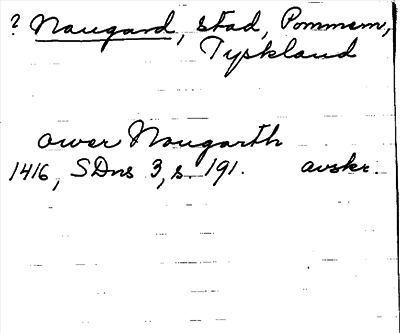 ? Naugard, stad, Pommern,
Tyskland
ower Nougarth
1416, SDns 3, s. 191. avskr.